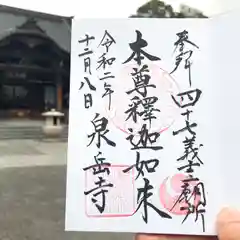 奉拝
四十七義士廟所
本尊釋迦如来
令和二年
十二月八日
泉岳寺